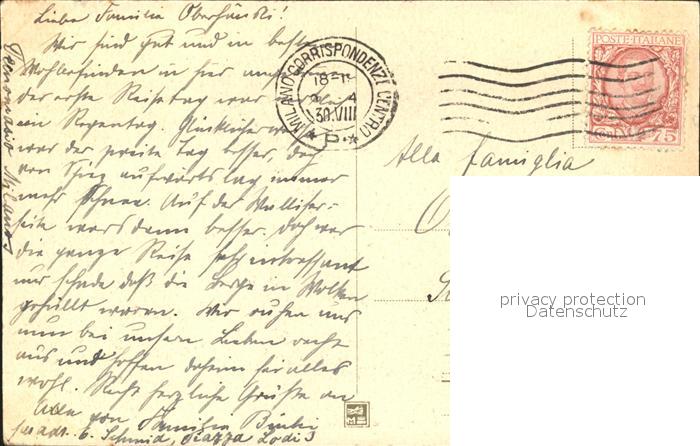 Liebe Familie Oberhänsli!
Wir sind gut und in bestem
Wohlbefinden in hier
der erste Reisetag war
ein Regentag. Glücklicherweise
war der zweite Tag besser, doch
von Spiez aufwärts lag immer
mehr Schnee. Auf der Walliser-
seite wars dann besser. Doch war
die ganze Reise sehr interessant
nur schade daß die Berge in Wolken
gehüllt waren. Wir ruhen uns
nun bei unsern Lieben recht
aus und hoffen daheim sei alles
wohl. Recht herzliche Grüße an
Alle von Familie
E. Schmid, Piazza Lodi 3
Milano
MILANO CORRISPONDENZE CENTRO
18-
30.VIII
* P. *
POSTE ITALIANE
CENT. 75
Alla famiglia
privacy protection
Datenschutz